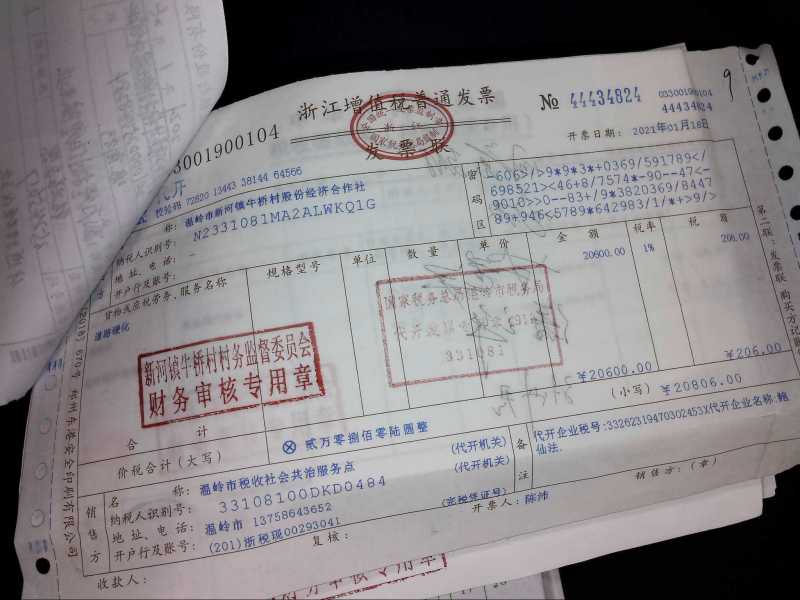 浙江增值税普通发票
发票联
№ 44434824
033001900104
44434824
3001900104
开票日期: 2021年01月18日
校验码 72820 13443 38144 64566
称: 温岭市新河镇牛桥村股份经济合作社
纳税人识别号: N2331081MA2ALWKQ1G
地址、电话:
开户行及账号:
密码区
-606>/>9*9*3*+0369/591789</
698521><46+8/7574*-90--47<-
9010>>0--83+/9*3820369/8447
89+946<5789*642983/1/*+>9/>
货物或应税劳务、服务名称 规格型号 单位 数量 单价 金额 税率 税额
道路硬化 20600.00 1% 206.00
国家税务总局温岭市税务局
331081
新河镇牛桥村村务监督委员会
财务审核专用章
合计 ¥20600.00 ¥206.00
价税合计(大写) ⊗ 贰万零捌佰零陆圆整 (小写) ¥20806.00
销售方
名称: 温岭市税收社会共治服务点 (代开机关)
纳税人识别号: 33108100DKD0484 (代开机关)
地址、电话: 温岭市 13758643652
开户行及账号: (201)浙税现00293041 (完税凭证号)
备注
代开企业税号:33262319470302453X代开企业名称:鲍
仙法.
收款人:
复核:
开票人: 陈沛
销售方:(章)
第二联:发票联 购买方记账
9